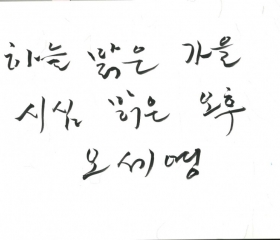 하늘 맑은 가을
시심 맑은 오후
오세영